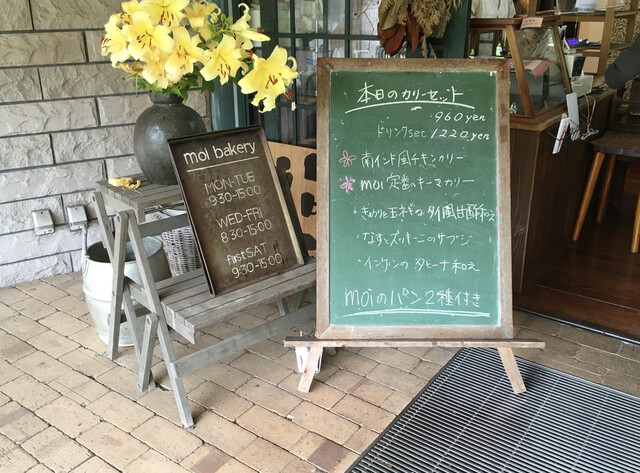 moi bakery
MON-TUE
9:30-15:00
WED-FRI
8:30-15:00
first SAT
9:30-15:00
本日のカリーセット
960yen
ドリンクset 1220yen
南インド風チキンカリー
moi 定番のキーマカリー
・きゅうりと玉ねぎのタイ風甘酢和え
・なすとズッキーニのサブジ
・インゲンのタヒーナ和え
moiのパン2種付き